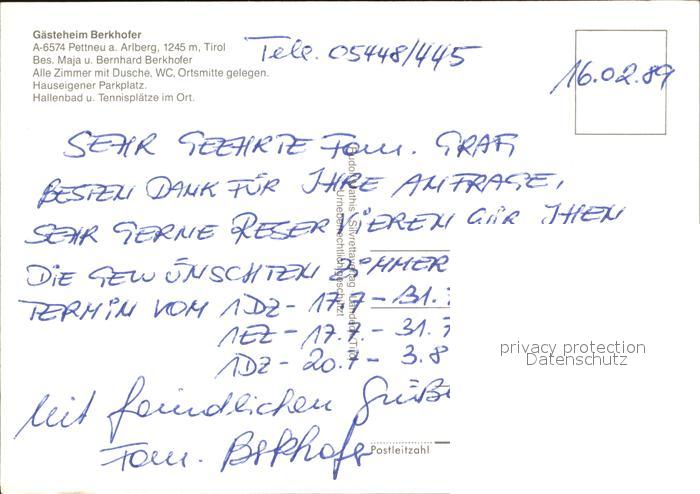 Gästeheim Berkhofer
A-6574 Pettneu a. Arlberg, 1245 m, Tirol
Bes. Maja u. Bernhard Berkhofer
Alle Zimmer mit Dusche, WC, Ortsmitte gelegen.
Hauseigener Parkplatz.
Hallenbad u. Tennisplätze im Ort.
Tele. 05448/445
16.02.89
SEHR GEEHRTE Fam. GRAF,
BESTEN DANK FÜR IHRE ANFRAGE,
SEHR GERNE RESERVIEREN WIR IHEN
DIE GEWÜNSCHTEN ZIMMER
TERMIN VOM 1DZ - 17.7 - 31.7
1EZ - 17.7 - 31.7
1DZ - 20.7 - 3.8
Mit freundlichen Grüße
Fam. Berkhofer
Silvrettaverlag Landeck-Tirol
Urheberrechtlich geschützt
Postleitzahl
privacy protection
Datenschutz